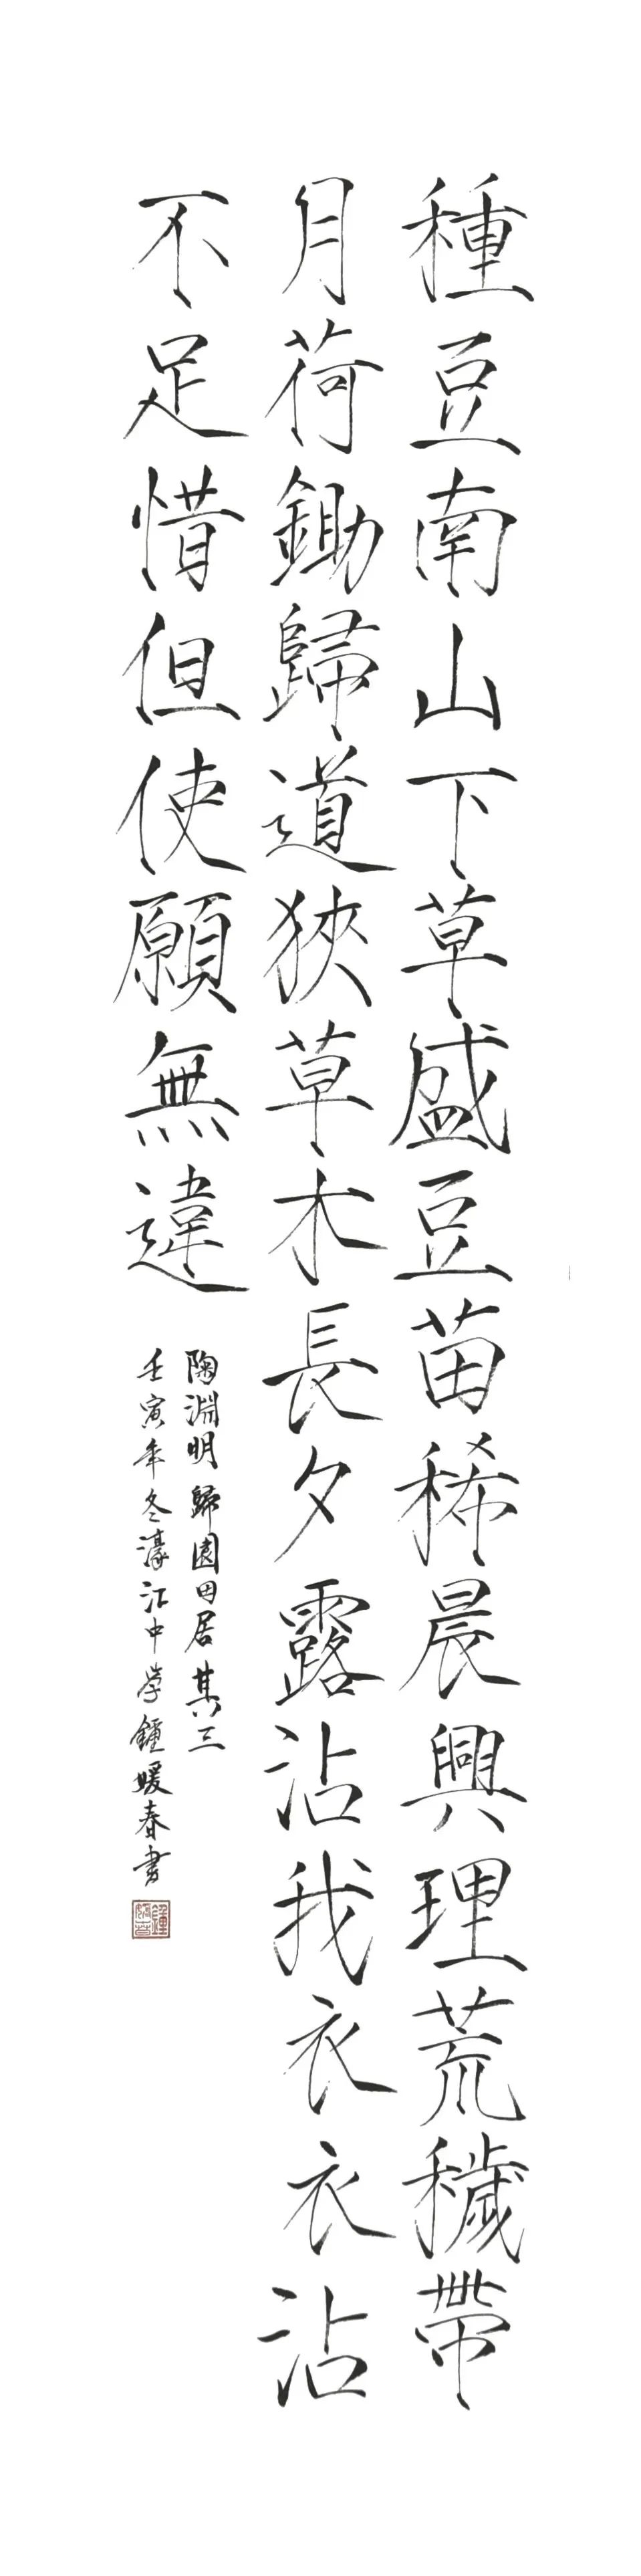 種豆南山下草盛豆苗稀晨興理荒穢帶
月荷鋤歸道狹草木長夕露沾我衣衣沾
不足惜但使願無違
陶淵明歸園田居其三
壬寅年冬濠江中學鍾媛春書